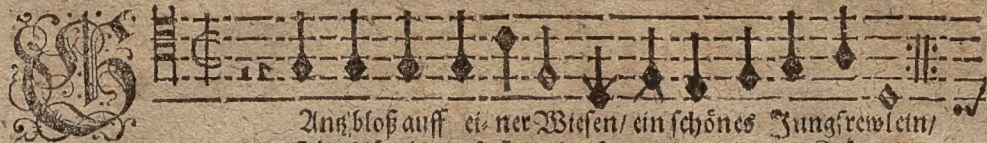 GAntzbloß auff ei- ner Wiesen/ ein schönes Jungfrewlein/